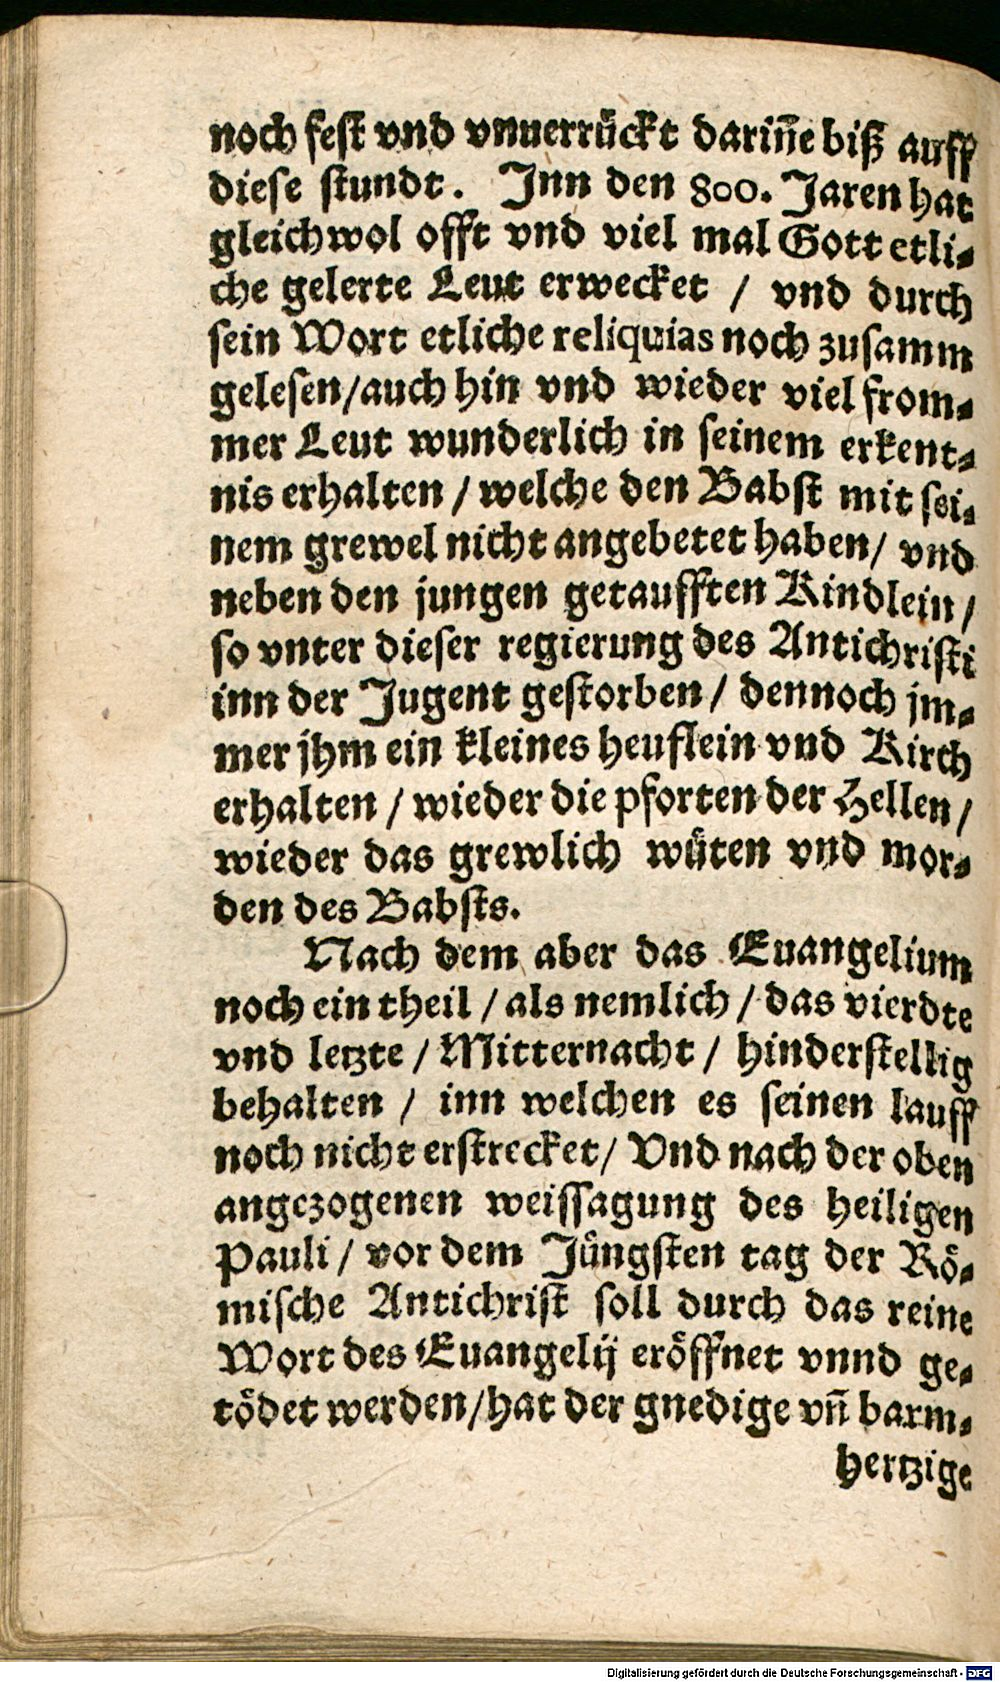 noch fest vnd vnuerrückt darin̄e biß auff
diese stundt. Jnn den 800. Jaren hat
gleichwol offt vnd viel mal Gott etli-
che gelerte Leut erwecket / vnd durch
sein Wort etliche reliquias noch zusamm
gelesen/auch hin vnd wieder viel from-
mer Leut wunderlich in seinem erkent-
nis erhalten / welche den Babst mit sei-
nem grewel nicht angebetet haben/ vnd
neben den jungen getaufften Kindlein /
so vnter dieser regierung des Antichristi
inn der Jugent gestorben / dennoch jm-
mer jhm ein kleines heuflein vnd Kirch
erhalten / wieder die pforten der Hellen /
wieder das grewlich wüten vnd mor-
den des Babsts.
Nach dem aber das Euangelium
noch ein theil / als nemlich / das vierdte
vnd letzte / Mitternacht / hinderstellig
behalten / inn welchen es seinen lauff
noch nicht erstrecket/ Vnd nach der oben
angezogenen weissagung des heiligen
Pauli / vor dem Jüngsten tag der Rö-
mische Antichrist soll durch das reine
Wort des Euangelij eröffnet vnnd ge-
tödet werden/hat der gnedige vn̄ barm-
hertzige
Digitalisierung gefördert durch die Deutsche Forschungsgemeinschaft - DFG